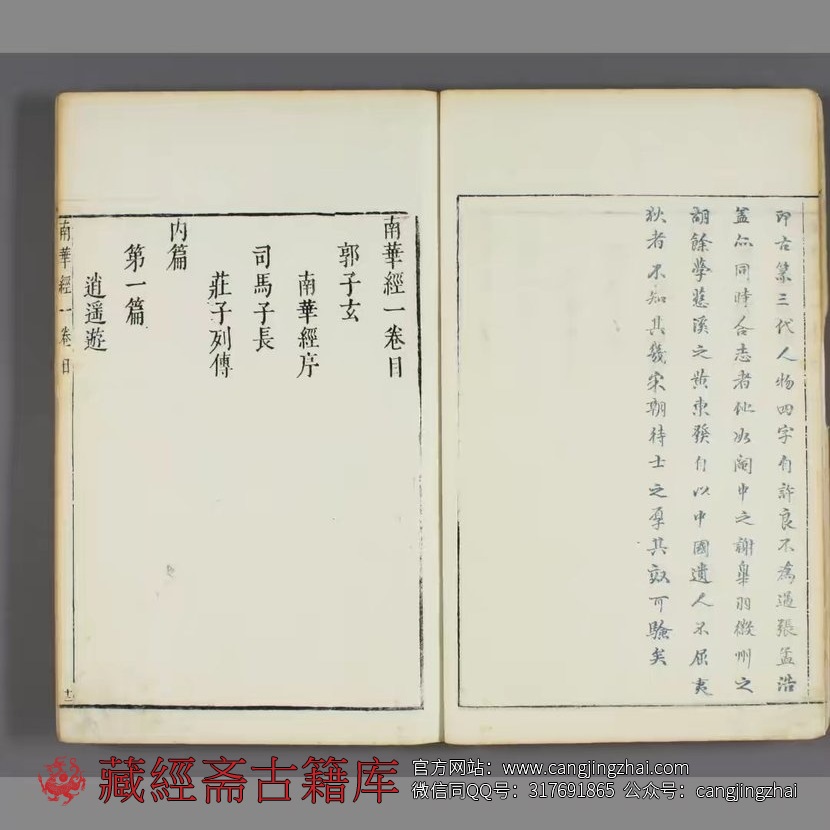 即古第三代人物四字自許良不為過張孟浩
蓋亦同時合志者他如閩中之謝皋羽徽州之
胡餘學慈溪之黃東發自以中國遺人不屈夷
狄者不知其幾宋朝待士之厚其效可驗矣
南華經一卷目
郭子玄
南華經序
司馬子長
莊子列傳
內篇
第一篇
逍遥遊
南華經一卷目
十二
藏經斋古籍库
官方网站：www.cangjingzhai.com
微信同QQ号：317691865 公众号：cangjingzhai